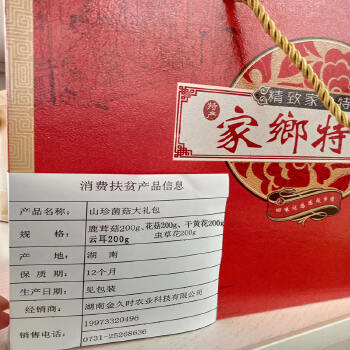 精致家
特产
家鄉特
消费扶贫产品信息
产品名称: 山珍菌菇大礼包
规 格: 鹿茸菇200g、花菇200g、干黄花200g
云耳200g 虫草花200g
产 地: 湖 南
保 质 期: 12个月
生产日期: 见包装
经销商: 湖南金久时农业科技有限公司
19973320496
销售电话: 0731-25268636